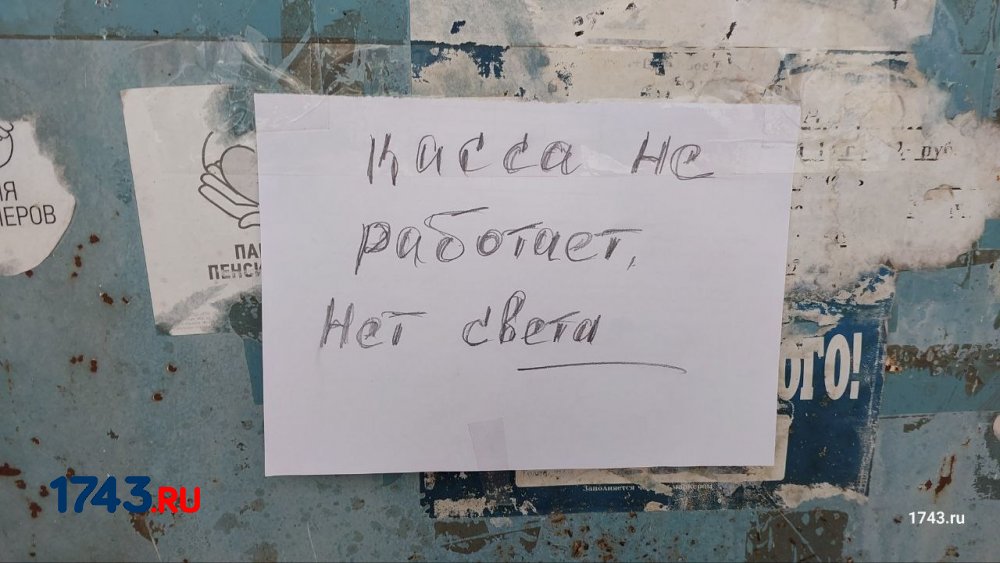 Касса не
работает,
Нет света
ПА
ПЕНСИ
НЕРОВ
руб.
ОГО!
Заполняется
1743.RU
1743.ru